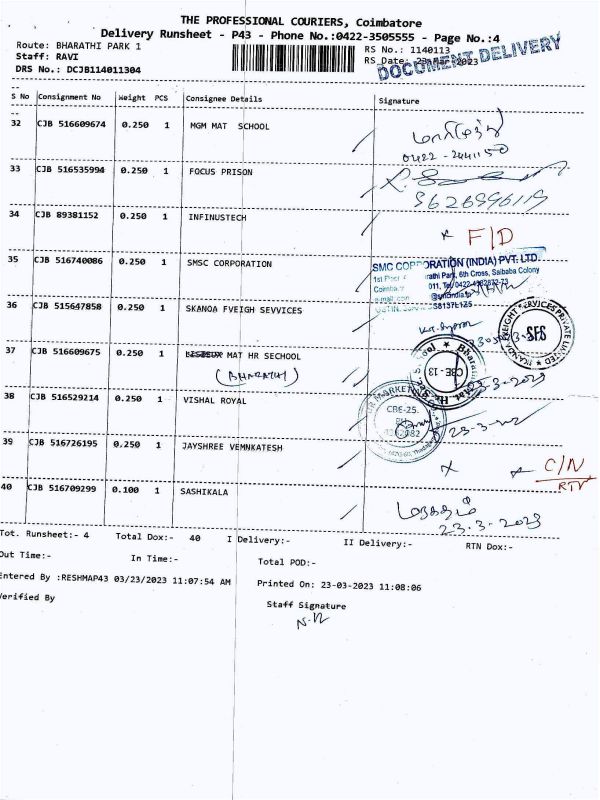 THE PROFESSIONAL COURIERS, Coimbatore
Delivery Runsheet - P43 - Phone No.:0422-3505555 - Page No.:4
Route: BHARATHI PARK 1
RS No.: 1140113
Staff: RAVI
RS Date: 23 Mar 2023
DOCUMENT DELIVERY
DRS No.: DCJB114011304
S No Consignment No Weight PCS Consignee Details Signature
32 CJB 516609674 0.250 1 MGM MAT SCHOOL
0422 - 2441150
33 CJB 516535994 0.250 1 FOCUS PRISON
9626996119
34 CJB 89381152 0.250 1 INFINUSTECH
F/D
35 CJB 516740086 0.250 1 SMSC CORPORATION
SMC CORPORATION (INDIA) PVT. LTD.
6th Cross, Saibaba Colony
36 CJB 515647858 0.250 1 SKANOA FVEIGH SEVVICES
SFS
37 CJB 516609675 0.250 1 MAT HR SECHOOL
(BHARATHI)
CBE - 13
23-3-2023
38 CJB 516529214 0.250 1 VISHAL ROYAL
CBE-25.
23-3-
39 CJB 516726195 0.250 1 JAYSHREE VEMNKATESH
C/N
RTN
40 CJB 516709299 0.100 1 SASHIKALA
23.3-2023
Tot. Runsheet:- 4 Total Dox:- 40 I Delivery:- II Delivery:- RTN Dox:-
Out Time:- In Time:- Total POD:-
Entered By :RESHMAP43 03/23/2023 11:07:54 AM Printed On: 23-03-2023 11:08:06
Verified By Staff Signature